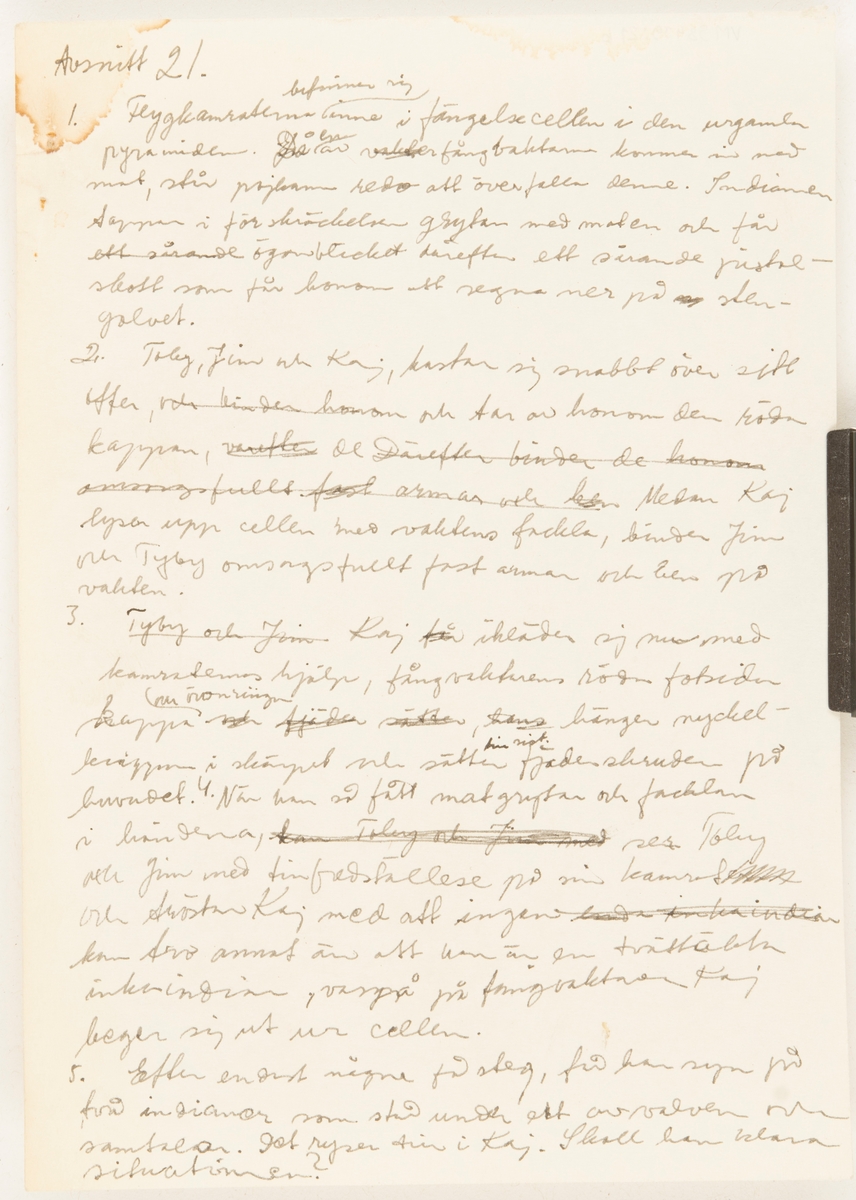 Avsnitt 21.
befinner sig
1. Flygkamraterna inne i fängelsecellen i den urgamla
pyramiden. Då fångvaktaren kommer in med
mat, står pojkarna redo att överfalla denne. Indianen
tappar i förskräckelsen grytan med maten och får
ett sårande ögonblicket därefter ett sårande pistol-
skott som får honom att segna ner på sten-
golvet.
2. Toby, Jim och Kaj, kastar sig snabbt över sitt
offer, och binder honom och tar av honom den röda
kappan, varefter de Därefter binder de honom
omsorgsfullt fast armar och ben Medan Kaj
lyser upp cellen med vaktens fackla, binder Jim
och Tyby omsorgsfullt fast armar och ben på
vakten.
3. Tyby och Jim Kaj får ikläder sig nu med
kamraternas hjälp, fångvaktarens röda fotsida
kappa och fjäder sätter, hans hänger nyckel-
knippan i skärpet och sätter fjäderskruden på
huvudet. 4. När han så fått matgrytan och facklan
i händerna, han Toby och Jim med ser Toby
och Jim med tinfredställese på sin kamrat
och tröstar Kaj med att ingen enda inkaindian
kan tro annat än att han är en tvättäkta
inkaindian, varpå på fångvaktaren Kaj
beger sig ut ur cellen.
5. Efter endast några få steg, får han syn på
två indianer som står under ett av valven och
samtalar. Det ryser till i Kaj. Skall han klara
situationen?